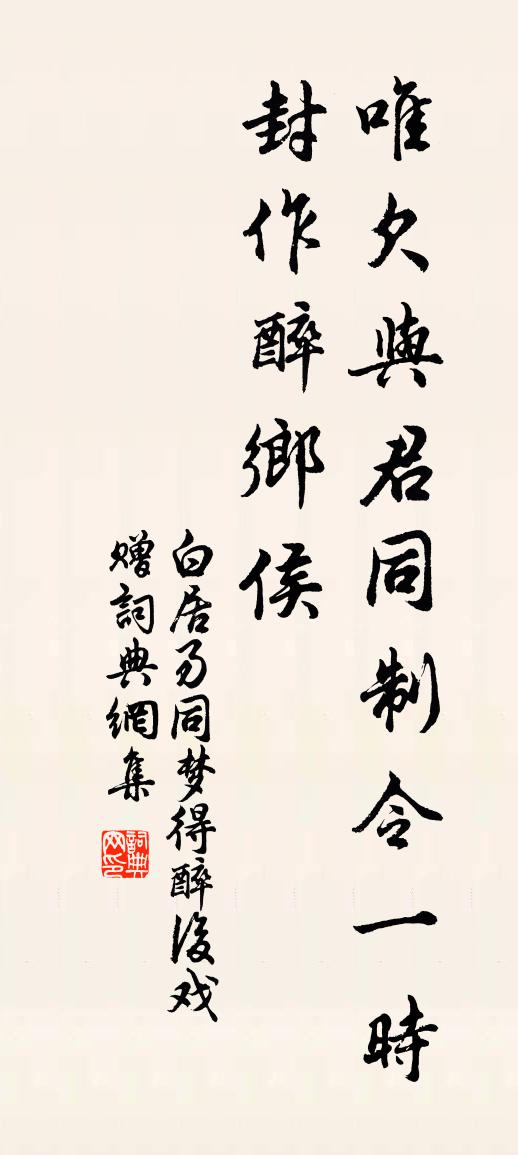 唯欠與君同制令一時
封作醉鄉侯
白居易同梦得醉後戏
赠詞典網集
詞典網印